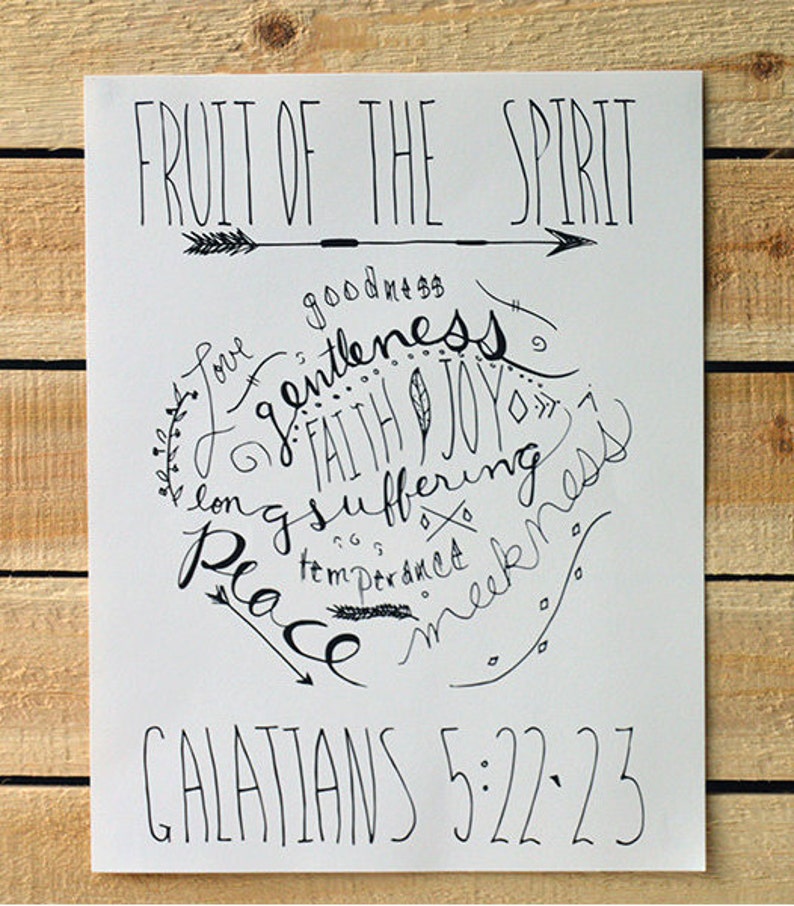 FRUIT OF THE SPIRIT
goodness
Love
gentleness
FAITH JOY
longsuffering
temperance
Peace
meekness
GALATIANS 5:22-23